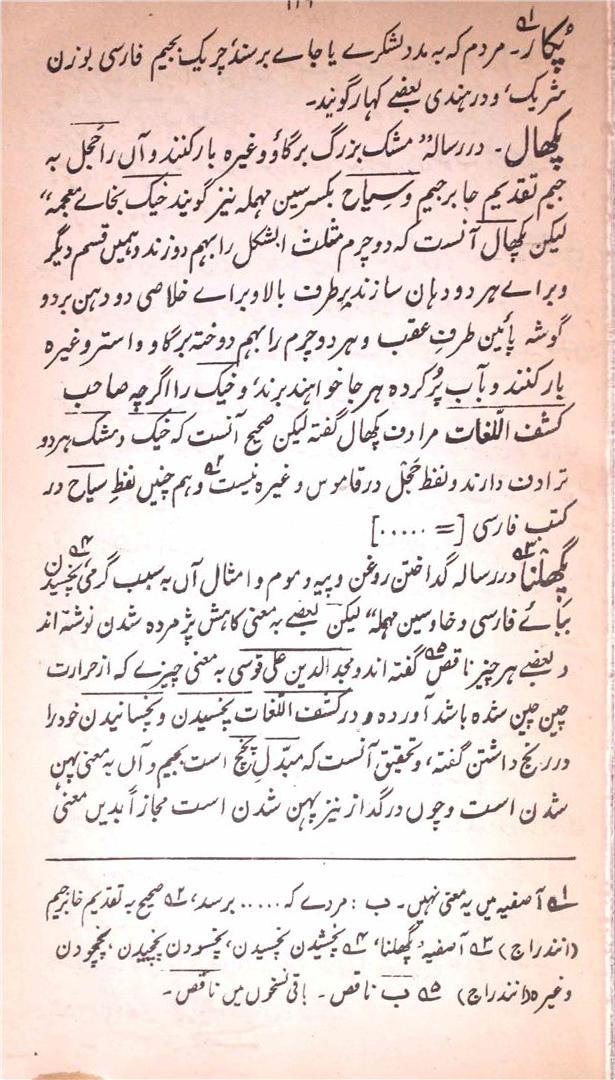 ۱۱۶
پُکار۔ مردم کہ بہ مدد لشکرے یا جاے برسند چریک بجیم فارسی بوزن
شریک، و درہندی بعضے کہار گویند۔
پکھال۔ در رسالہ "مشک بزرگ برگاؤ وغیرہ بارکنند و آں را حجل بہ
جیم تقدیم حا برجیم و سیاح بکسر سین مہملہ نیز گویند خیک بخاے معجمہ"
لیکن پکھال آنست کہ دو چرم مثلث الشکل را بہم دوزند و ہمیں قسم دیگر
و براے ہر دو دہان سازند پرطرف بالا و براے خلاصی دو دہن بر دو
گوشہ پائین طرفِ عقب و ہر دو چرم را بہم دوختہ برگاو و استر وغیرہ
بارکنند و بآب پُر کردہ ہر جا خواہند برند، و خیک را اگرچہ صاحب
کشف اللّغات مرادف پکھال گفتہ لیکن صحیح آنست کہ خیک و مشک ہر دو
ترادف دارند و لفظ حَجَل در قاموس وغیرہ نیست ۲ و ہم چنیں لفظِ سیاح در
کتبِ فارسی [= ......]
پگھلنا ۳ در رسالہ گداختن روغن و پیہ و موم و امثال آں بہ سبب گرمی، پخسیدن ۴
ببائے فارسی و خا و سین مہملہ" لیکن بعضے بہ معنی کاہش پژمردہ شدن نوشتہ اند
و بعضے ہر چیز ناقص ۵ گفتہ اند و مجد الدین علی قوسی بہ معنی چیزے کہ از حرارت
چین چین شدہ باشد آوردہ و در کشف اللّغات پخسیدن و پخسانیدن خود را
در رنج داشتن گفتہ، و تحقیق آنست کہ مبدّلِ پخچ است بجیم و آں بہ معنی پہن
شدن است و چوں در گداز نیز پہن شدن است مجازاً بدیں معنی
۱ آصفیہ میں یہ معنی نہیں۔ ب : مردے کہ ..... برسد، ۲ صحیح بہ تقدیم خا برجیم
(انندراج) ۳ آصفیہ، پگھلنا، ۴ پخشیدن پخسیدن، پخسودن پخچیدن، پخچودن
وغیرہ (انندراج) ۵ ب ناقص۔ باقی نسخوں میں ناقص۔